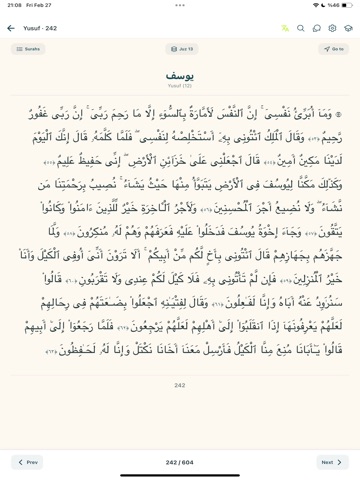 21:08 Fri Feb 27
%46
Yusuf · 242
Surahs
Juz 13
Go to
يوسف
Yusuf (12)
۞ وَمَا أُبَرِّئُ نَفْسِىٓ ۚ إِنَّ ٱلنَّفْسَ لَأَمَّارَةٌۢ بِٱلسُّوٓءِ إِلَّا مَا رَحِمَ رَبِّىٓ ۚ إِنَّ رَبِّى غَفُورٌ
رَّحِيمٌ ﴿٥٣﴾ وَقَالَ ٱلْمَلِكُ ٱئْتُونِى بِهِۦٓ أَسْتَخْلِصْهُ لِنَفْسِى ۖ فَلَمَّا كَلَّمَهُۥ قَالَ إِنَّكَ ٱلْيَوْمَ
لَدَيْنَا مَكِينٌ أَمِينٌ ﴿٥٤﴾ قَالَ ٱجْعَلْنِى عَلَىٰ خَزَآئِنِ ٱلْأَرْضِ ۖ إِنِّى حَفِيظٌ عَلِيمٌ ﴿٥٥﴾
وَكَذَٰلِكَ مَكَّنَّا لِيُوسُفَ فِى ٱلْأَرْضِ يَتَبَوَّأُ مِنْهَا حَيْثُ يَشَآءُ ۚ نُصِيبُ بِرَحْمَتِنَا مَن
نَّشَآءُ ۖ وَلَا نُضِيعُ أَجْرَ ٱلْمُحْسِنِينَ ﴿٥٦﴾ وَلَأَجْرُ ٱلْـَٔاخِرَةِ خَيْرٌ لِّلَّذِينَ ءَامَنُوا۟ وَكَانُوا۟
يَتَّقُونَ ﴿٥٧﴾ وَجَآءَ إِخْوَةُ يُوسُفَ فَدَخَلُوا۟ عَلَيْهِ فَعَرَفَهُمْ وَهُمْ لَهُۥ مُنكِرُونَ ﴿٥٨﴾ وَلَمَّا
جَهَّزَهُم بِجَهَازِهِمْ قَالَ ٱئْتُونِى بِأَخٍ لَّكُم مِّنْ أَبِيكُمْ ۚ أَلَا تَرَوْنَ أَنِّىٓ أُوفِى ٱلْكَيْلَ وَأَنَا۠
خَيْرُ ٱلْمُنزِلِينَ ﴿٥٩﴾ فَإِن لَّمْ تَأْتُونِى بِهِۦ فَلَا كَيْلَ لَكُمْ عِندِى وَلَا تَقْرَبُونِ ﴿٦٠﴾ قَالُوا۟
سَنُرَٰوِدُ عَنْهُ أَبَاهُ وَإِنَّا لَفَـٰعِلُونَ ﴿٦١﴾ وَقَالَ لِفِتْيَـٰنِهِ ٱجْعَلُوا۟ بِضَـٰعَتَهُمْ فِى رِحَالِهِمْ
لَعَلَّهُمْ يَعْرِفُونَهَآ إِذَا ٱنقَلَبُوٓا۟ إِلَىٰٓ أَهْلِهِمْ لَعَلَّهُمْ يَرْجِعُونَ ﴿٦٢﴾ فَلَمَّا رَجَعُوٓا۟ إِلَىٰٓ أَبِيهِمْ
قَالُوا۟ يَـٰٓأَبَانَا مُنِعَ مِنَّا ٱلْكَيْلُ فَأَرْسِلْ مَعَنَآ أَخَانَا نَكْتَلْ وَإِنَّا لَهُۥ لَحَـٰفِظُونَ ﴿٦٣﴾
242
Prev
242 / 604
Next